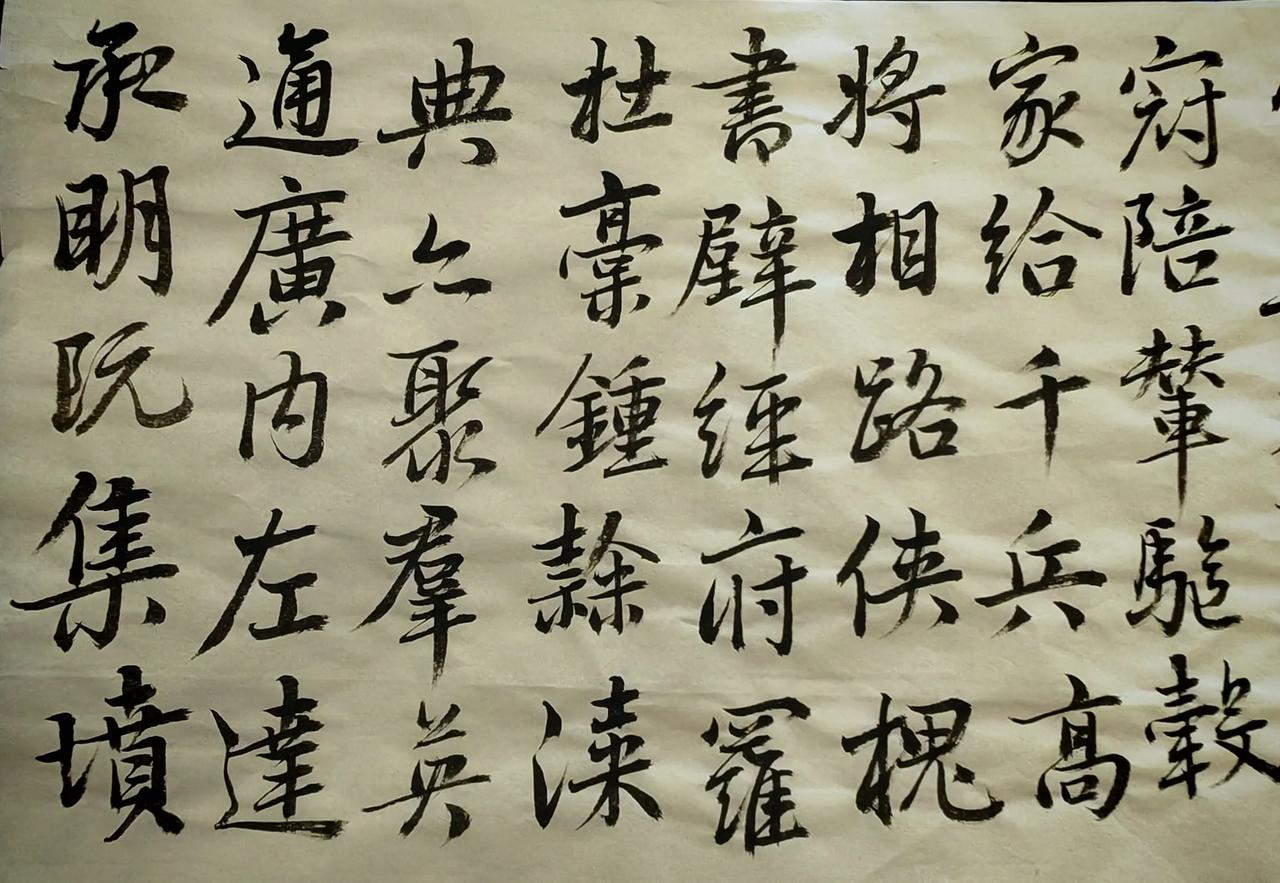 承明既集墳
通廣內左達
典亦聚羣英
杜稾鍾隸漆
書壁經府羅
將相路俠槐
家給千兵高
冠陪輦驅轂